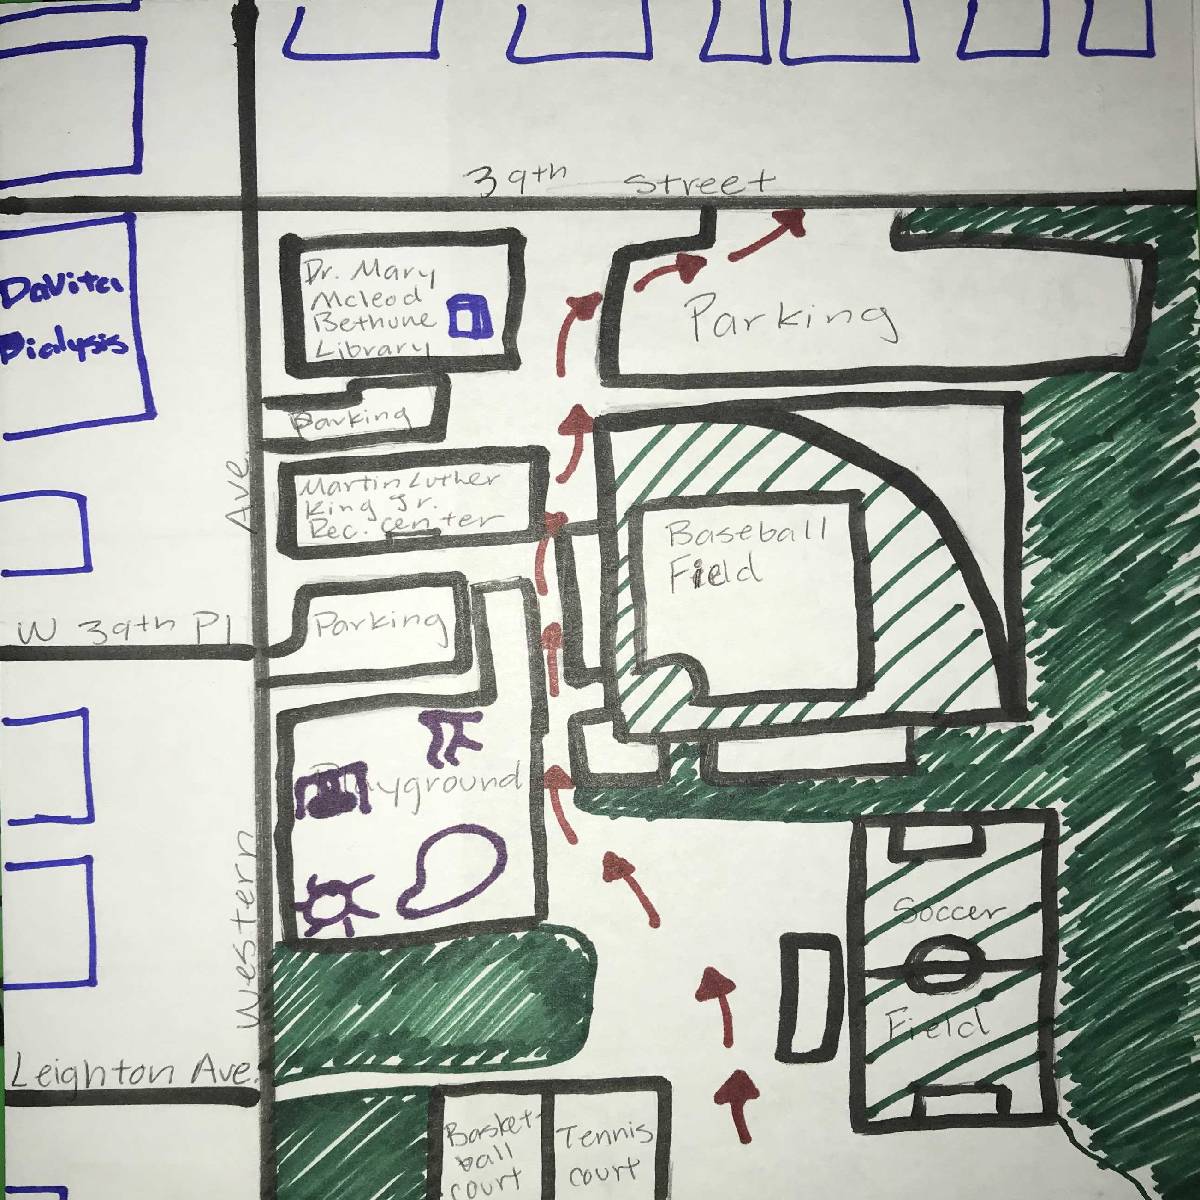 39th Street
DaVita
Dialysis
Dr. Mary
Mcleod
Bethune
Library
Parking
Parking
Ave.
Martin Luther
King Jr.
Rec. center
Baseball
Field
W 39th Pl
Parking
Playground
Western
Soccer
Field
Leighton Ave.
Basket-
ball
court
Tennis
court